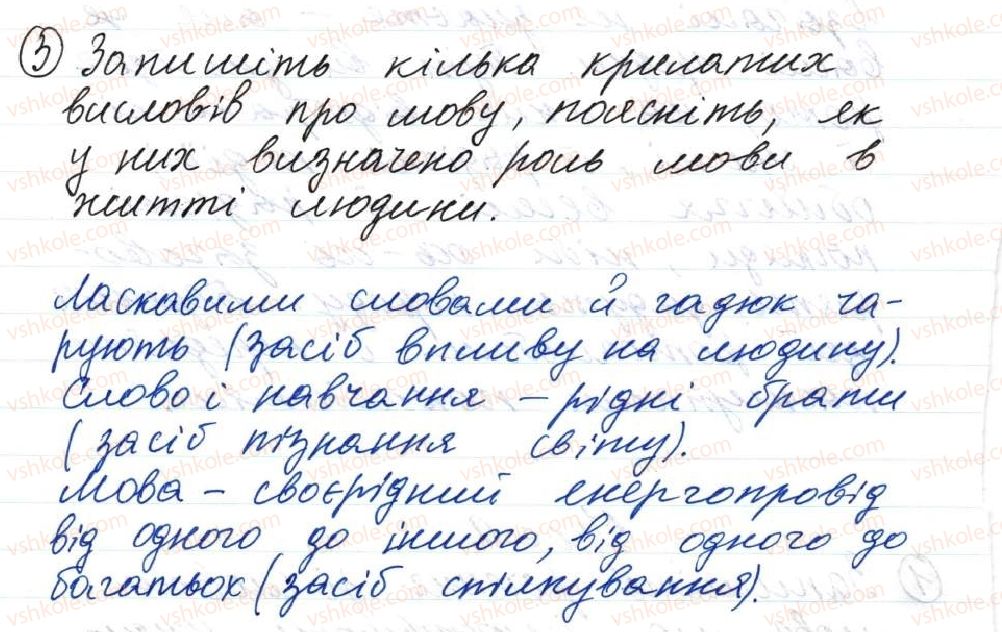 3 Запишіть кілька крилатих
висловів про мову, поясніть, як
у них визначено роль мови в
житті людини.
Ласкавими словами й гадюк ча-
рують (засіб впливу на людину).
Слово і навчання – рідні брати
(засіб пізнання світу).
Мова – своєрідний енергопровід
від одного до іншого, від одного до
багатьох (засіб спілкування).